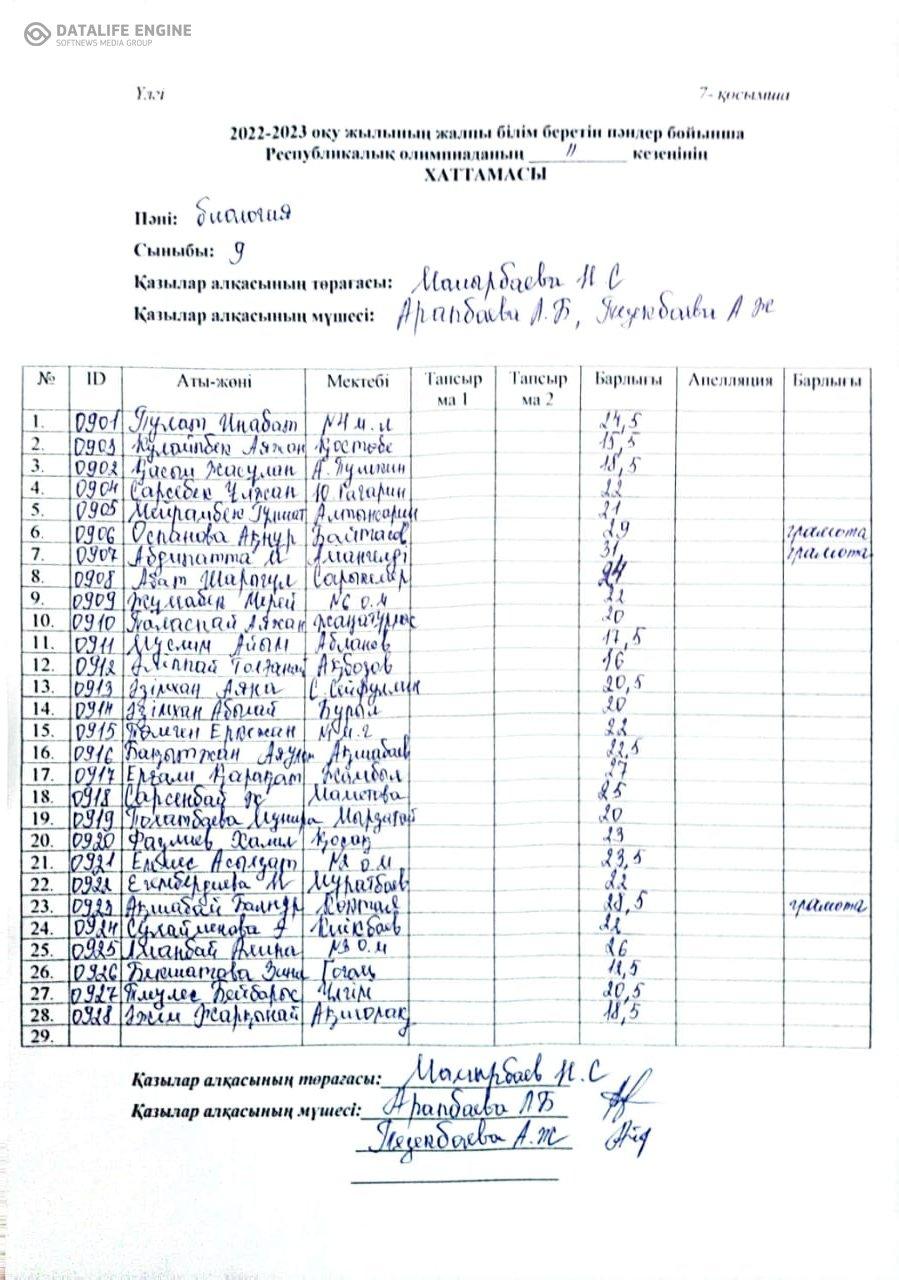 DATALIFE ENGINE
SOFTNEWS MEDIA GROUP
Үлгі 7- қосымша
2022-2023 оқу жылының жалпы білім беретін пәндер бойынша
Республикалық олимпиаданың II кезеңінің
ХАТТАМАСЫ
Пәні: биология
Сыныбы: 9
Қазылар алқасының төрағасы: Мамырбаева Н С
Қазылар алқасының мүшесі: Арапбаева Л.Б, А Ж
№ ID Аты-жөні Мектебі Тапсыр ма 1 Тапсыр ма 2 Барлығы Апелляция Барлығы
1. 0901 Инабат №4 м.л 24,5
2. 0903 Аяжан Қостөбе 15,5
3. 0902 Қасым Жасулан А.Пушкин 18,5
4. 0904 Сарсебек Ұлжан Ю Гагарин 22
5. 0905 Мейрамбек Алтынсарин 21
6. 0906 Оспанова Ақнұр Байтасов 29 грамота
7. 0907 Амангелді 31 грамота
8. 0908 Азат Шарыгул 24
9. 0909 Жумабек Мерей №6 о.м 22
10. 0910 Аяжан 20
11. 0911 Муслим Айым Абланов 17,5
12. 0912 Толғанай Ақбозов 16
13. 0913 Әзімхан Аяна С.Сейфуллин 20,5
14. 0914 Әзімхан Абылай Бурыл 20
15. 0915 Еркежан 22
16. 0916 Бақытжан Аяулым Ақшабаев 22,5
17. 0917 Ерғали Қарақат Жамбыл 27
18. 0918 Сарсенбай Ж Маметова 25
19. 0919 Полатбаева Мунира Мырзатай 20
20. 0920 Халил 23
21. 0921 №2 о.м 23,5
22. 0922 Егембердиева М Муратбаев 22
23. 0923 Ақшабай 28,5 грамота
24. 0924 Сулайменова Киікбаев 22
25. 0925 Амина №3 о.м 26
26. 0926 Гогаң
27. 0927 Бейбарыс Үлгім 20,5
28. 0928 Әжім Жарқынай 18,5
29.
Қазылар алқасының төрағасы: Мамырбаев Н.С
Қазылар алқасының мүшесі: Арапбаева Л Б
А.Ж